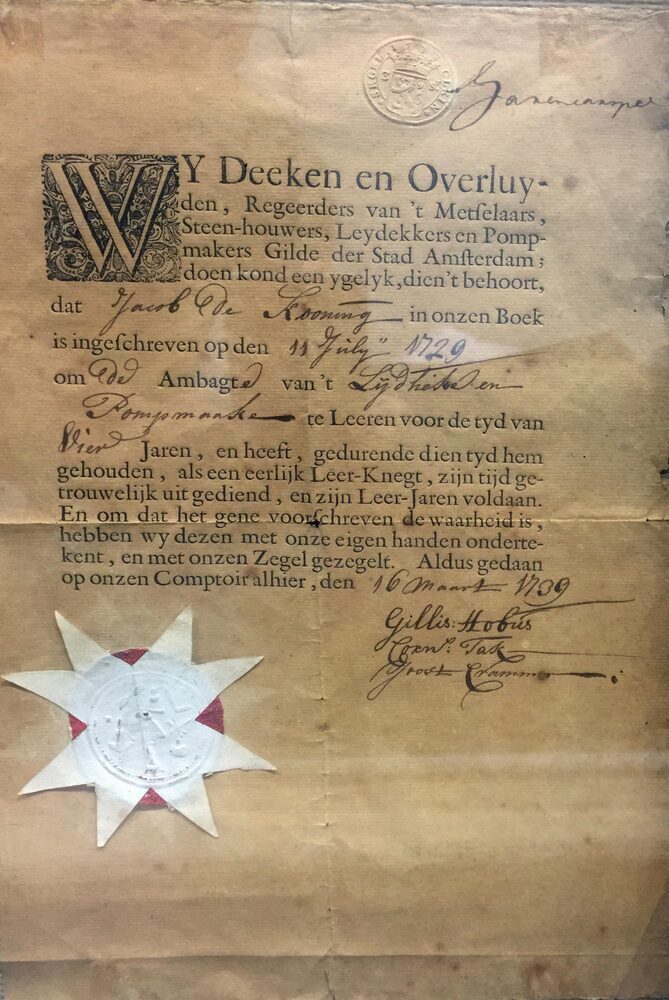 WY Deeken en Overluy-
den, Regeerders van 't Metſelaars,
Steen-houwers, Leydekkers en Pomp-
makers Gilde der Stad Amſterdam;
doen kond een ygelyk, dien't behoort,
dat Jacob De Kooning in onzen Boek
is ingeſchreven op den 11 July 1729
om De Ambagte van 't
Pompmaake te Leeren voor de tyd van
Vier Jaren, en heeft, gedurende dien tyd hem
gehouden, als een eerlijk Leer-Knegt, zijn tijd ge-
trouwelijk uit gediend, en zijn Leer-Jaren voldaan.
En om dat het gene voorſchreven de waarheid is,
hebben wy dezen met onze eigen handen onderte-
kent, en met onzen Zegel gezegelt. Aldus gedaan
op onzen Comptoir alhier, den 16 Maart 1739
Gillis: Hobus
Corn: Tak
Joost Cramm